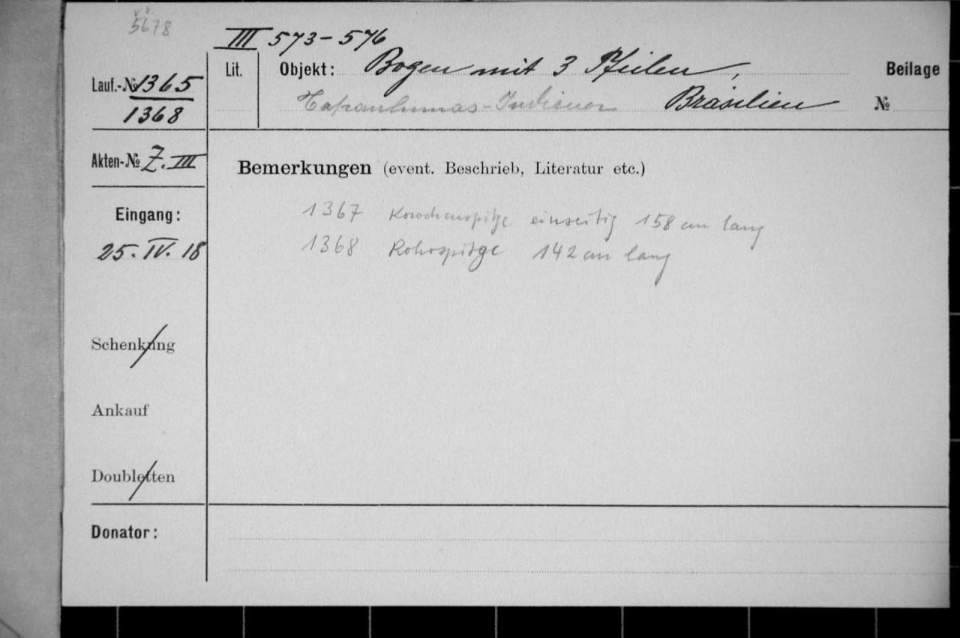 5678
III 573-576
Lauf.-№ 1365
1368
Lit.
Objekt: Bogen mit 3 Pfeilen,
Beilage
Indianer Brasilien
№
Akten-№ Z. III
Bemerkungen (event. Beschrieb, Literatur etc.)
Eingang:
25. IV. 18
1367 Knochenspitze einseitig 158 cm lang
1368 Rohrspitze 142 cm lang
Schenkung
Ankauf
Doubletten
Donator: